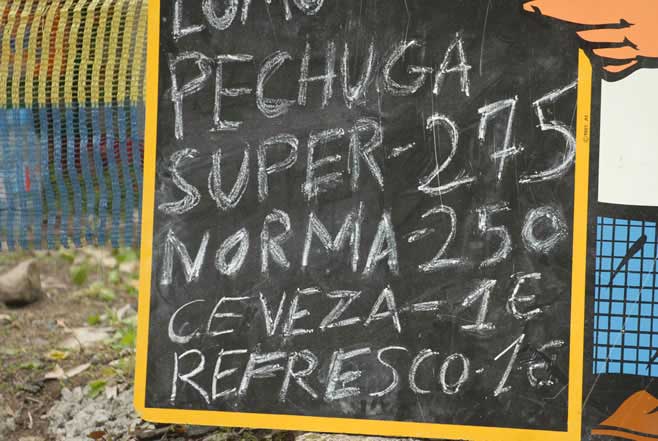 LOMO
PECHUGA
SUPER-275
NORMA-250
CEVEZA-1€
REFRESCO-1€